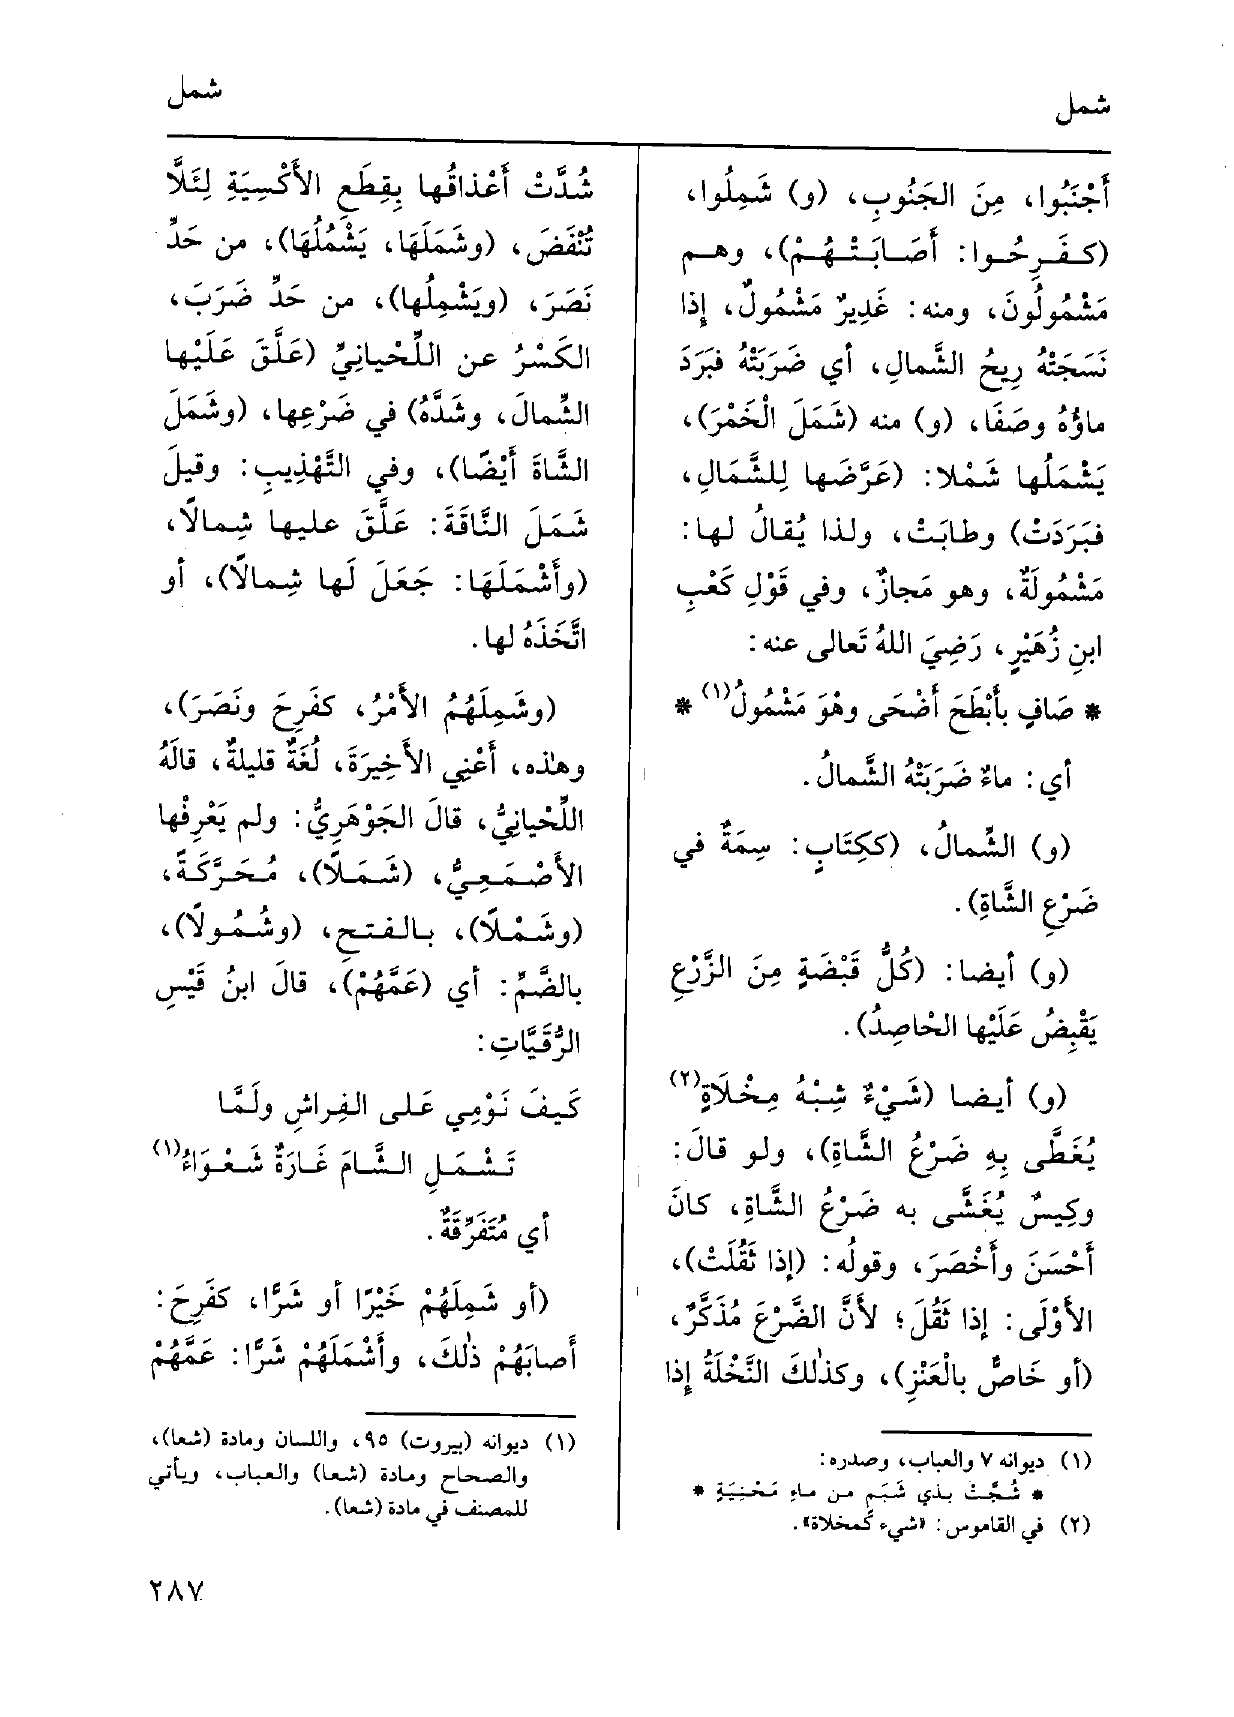 شمل
شمل
أَجْنَبُوا، مِنَ الجَنُوبِ، (و) شَمِلُوا،
(كَفَرِحُوا: أَصَابَتْهُمْ)، وهم
مَشْمُولُونَ، ومنه: غَدِيرٌ مَشْمُولٌ، إِذا
نَسَجَتْهُ رِيحُ الشَّمالِ، أي ضَرَبَتْهُ فبَرَدَ
ماؤُهُ وصَفَا، (و) منه (شَمَلَ الْخَمْرَ)،
يَشْمَلُها شَمْلا: (عَرَّضَها لِلشَّمَالِ،
فبَرَدَتْ) وطابَتْ، ولذا يُقالُ لها:
مَشْمُولَةٌ، وهو مَجازٌ، وفي قَوْلِ كَعْبِ
ابنِ زُهَيْرٍ، رَضِيَ اللهُ تَعالى عنه:
* صَافٍ بأَبْطَحَ أَضْحَى وهْوَ مَشْمُولُ(١) *
أي: ماءٌ ضَرَبَتْهُ الشَّمالُ.
(و) الشِّمالُ، (ككِتَابٍ: سِمَةٌ في
ضَرْعِ الشَّاةِ).
(و) أيضا: (كُلُّ قَبْضَةٍ مِنَ الزَّرْعِ
يَقْبِضُ عَلَيْها الحَاصِدُ).
(و) أيضا (شَيْءٌ شِبْهُ مِخْلَاةٍ(٢)
يُغَطَّى بِهِ ضَرْعُ الشَّاةِ)، ولو قالَ:
وكِيسٌ يُغَشَّى به ضَرْعُ الشَّاةِ، كانَ
أَحْسَنَ وأَخْصَرَ، وقولُه: (إذا ثَقُلَتْ)،
الأَوْلَى: إذا ثَقُلَ؛ لأَنَّ الضَّرْعَ مُذَكَّرٌ،
(أو خَاصٌّ بالْعَنْزِ)، وكذٰلكَ النَّخْلَةُ إذا
(١) ديوانه ٧ والعباب، وصدره:
* شُجَّتْ بذي شَبَمٍ من ماءِ مَحْنِيَةٍ *
(٢) في القاموس: «شيء كمخلاة».
شُدَّتْ أَعْذاقُها بِقِطَعِ الأَكْسِيَةِ لِئَلَّا
تُنْفَضَ، (وشَمَلَهَا، يَشْمُلُهَا)، من حَدِّ
نَصَرَ، (ويَشْمِلُها)، من حَدِّ ضَرَبَ،
الكَسْرُ عن اللِّحْيانِيِّ (عَلَّقَ عَلَيْها
الشِّمالَ، وشَدَّهُ) في ضَرْعِها، (وشَمَلَ
الشَّاةَ أَيْضًا)، وفي التَّهْذِيبِ: وقيلَ
شَمَلَ النَّاقَةَ: عَلَّقَ عليها شِمالاً،
(وأَشْمَلَهَا: جَعَلَ لَها شِمالاً)، أو
اتَّخَذَهُ لها.
(وشَمِلَهُمُ الأَمْرُ، كفَرِحَ ونَصَرَ)،
وهٰذه، أَعْنِي الأَخِيرَةَ، لُغَةٌ قليلةٌ، قالَهُ
اللِّحْيانِيُّ، قالَ الجَوْهَرِيُّ: ولم يَعْرِفْها
الأَصْمَعِيُّ، (شَمَلاً)، مُحَرَّكَةً،
(وشَمْلاً)، بالفتحِ، (وشُمُولاً)،
بالضَّمِّ: أي (عَمَّهُمْ)، قالَ ابنُ قَيْسِ
الرُّقَيَّاتِ:
كَيفَ نَوْمِي عَلى الفِراشِ ولَمَّا
تَشْمَلِ الشَّامَ غَارَةٌ شَعْوَاءُ(١)
أي مُتَفَرِّقَةٌ.
(أو شَمِلَهُمْ خَيْرًا أو شَرًّا، كفَرِحَ:
أَصابَهُمْ ذٰلكَ، وأَشْمَلَهُمْ شَرًّا: عَمَّهُمْ
(١) ديوانه (بيروت) ٩٥، واللسان ومادة (شعا)،
والصحاح ومادة (شعا) والعباب، ويأتي
للمصنف في مادة (شعا).
٢٨٧